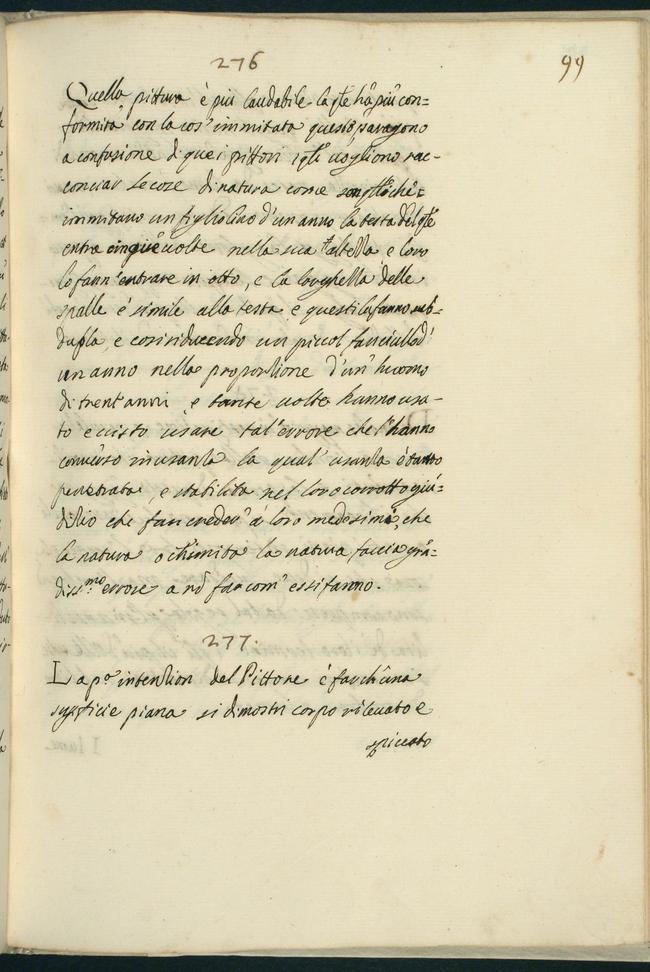 276
99
Quella pittura è piu laudabile la qle hà più con=
formità con la cos' immitata questo paragono
a confusione di quei pittori i qli uogliono rac-
conciar le cose di natura come son qlli chè=
immitano un figliolino d'un anno la testa del qle
entra cinque uolte nella sua altezza e loro
lo fann' entrare in otto, e la larghezza delle
spalle è simile alla testa e questi la fanno sub-
dupla, e cosi riducendo un piccol fanciullo d'
un anno nella proportione d'un' huomo
di trent' anni, e tante uolte hanno usa-
to e uisto usare tal' errore che l' hanno
conuerso in usanza la qual' usanza è tanto
penetrata, e stabilita nel loro corrotto giu-
ditio che fan creder' à loro medesimi, che
la natura o chi imita la natura faccia grã-
diss.mo errore a nõ far com' essi fanno.
277.
La pa intention del Pittore è far ch' una
supficie piana si dimostri corpo rileuato e
spiccato